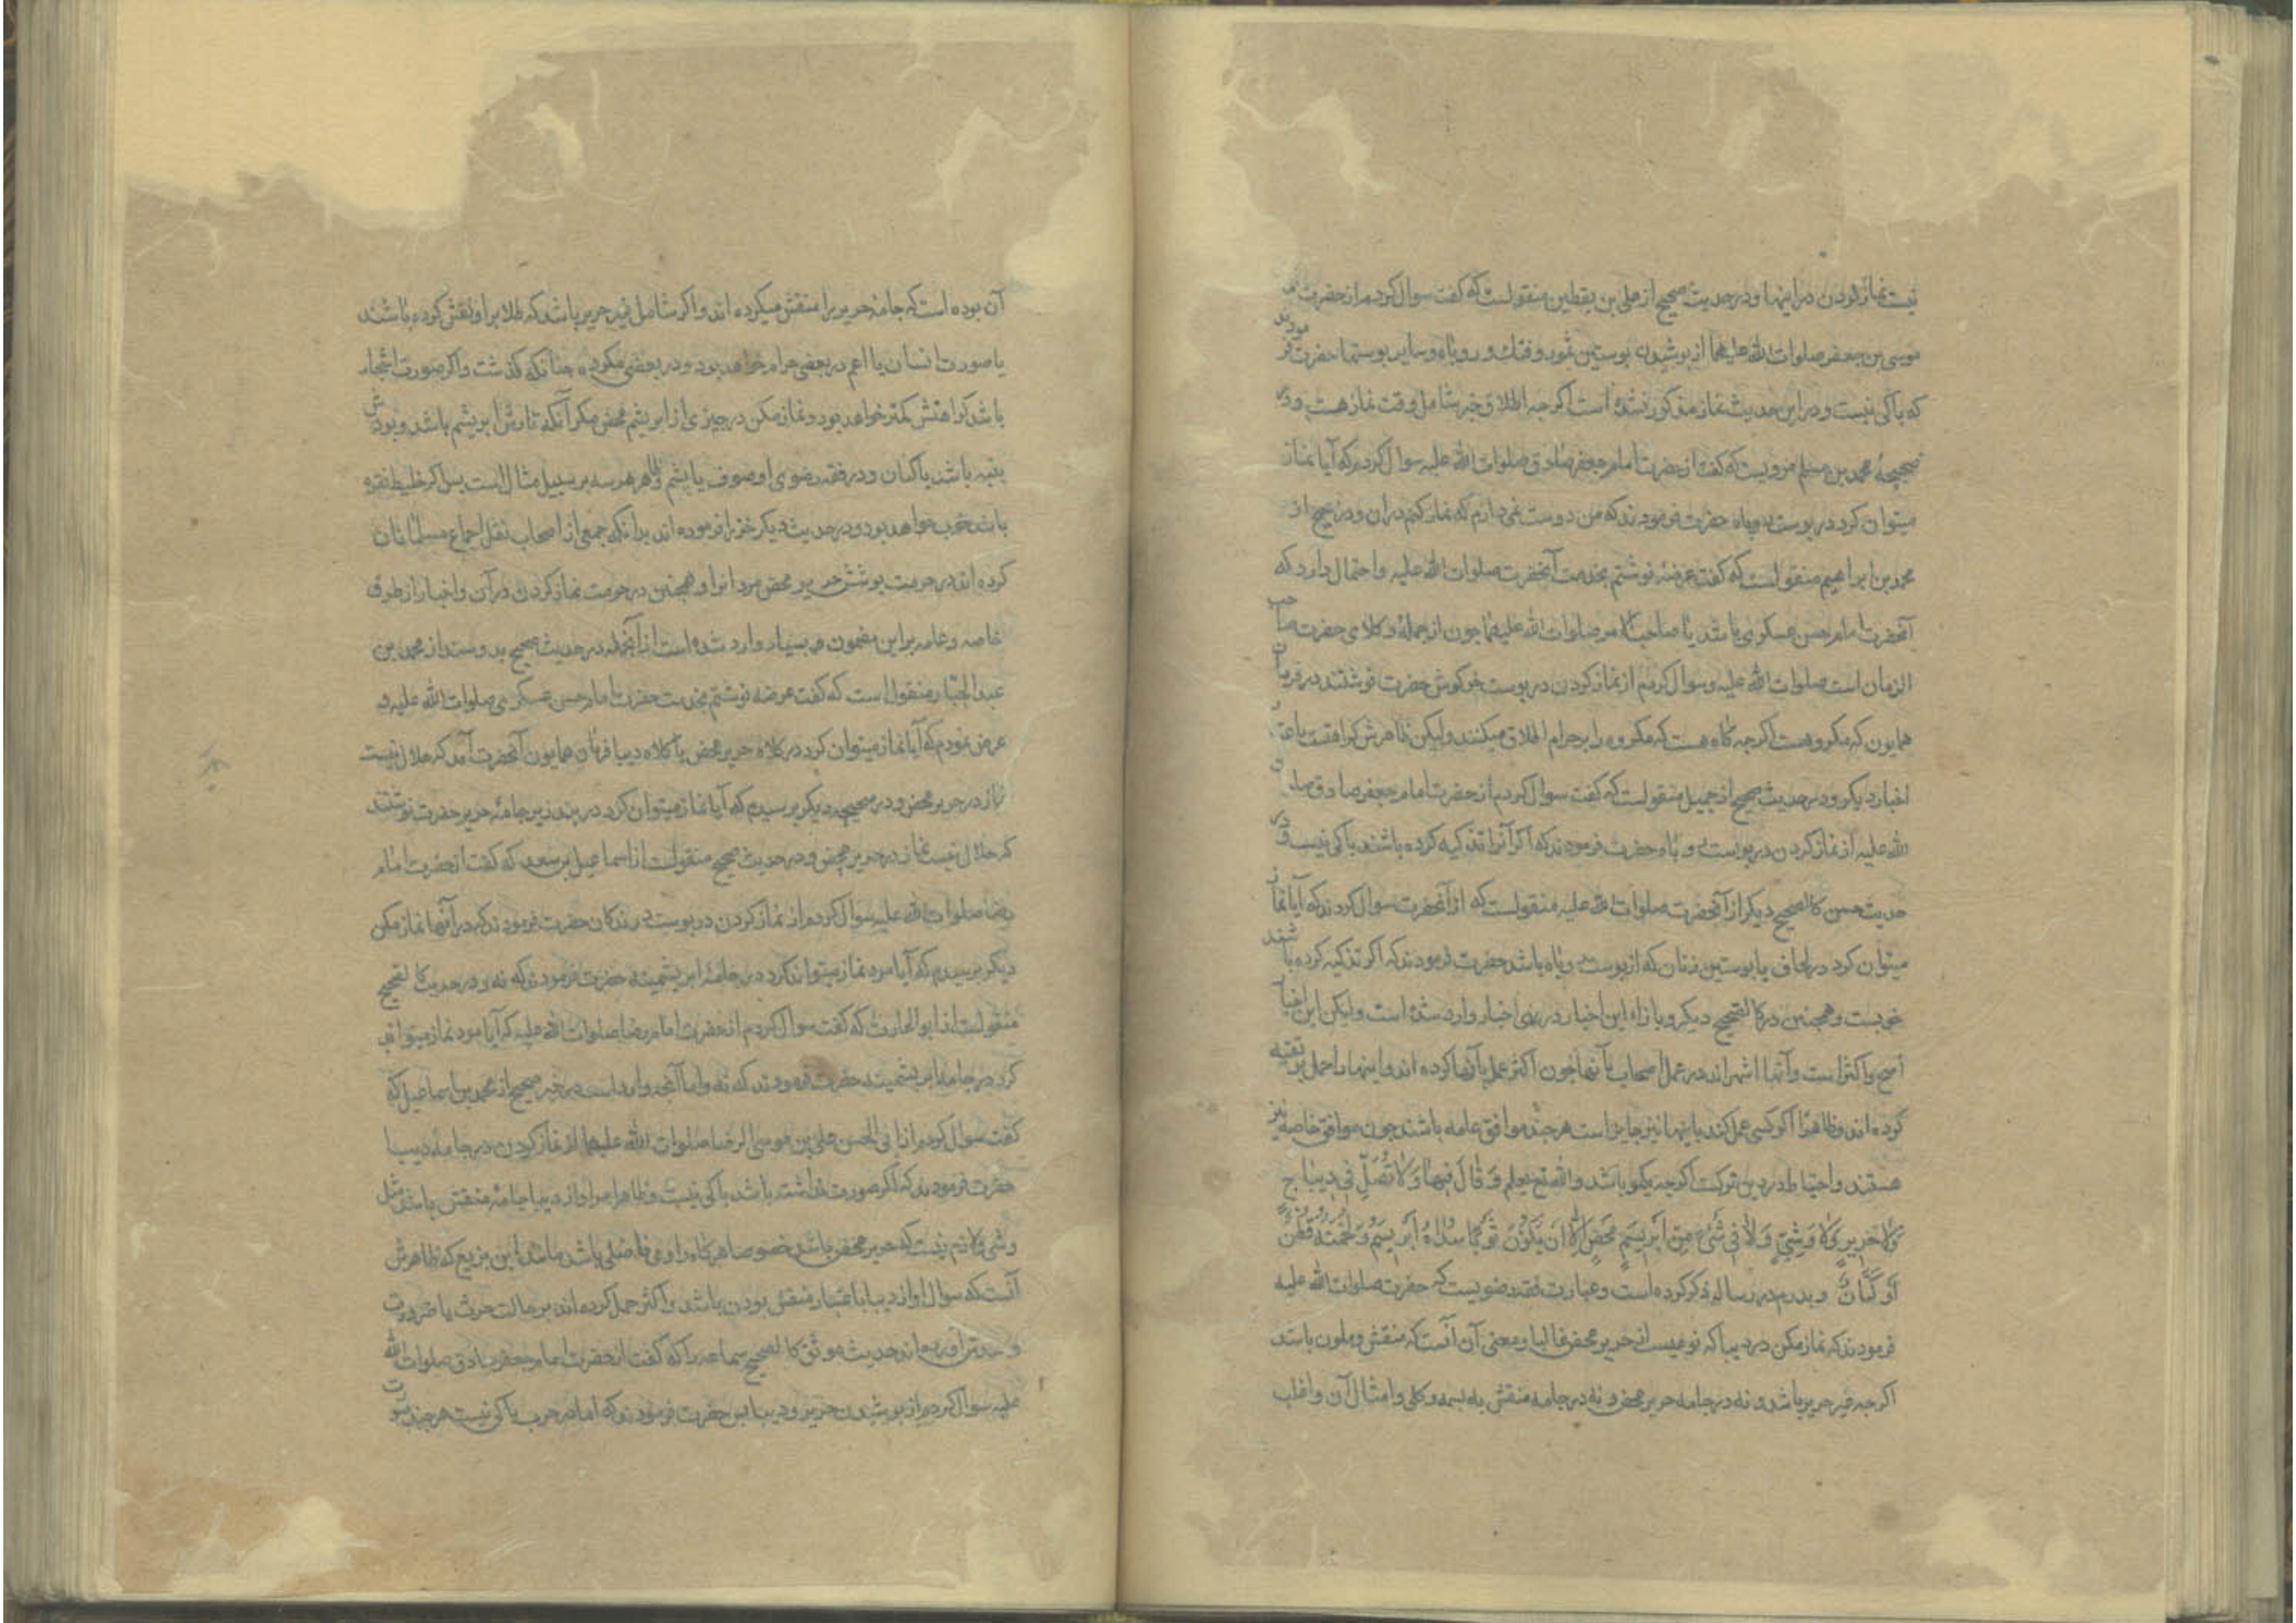 نیست نماز کردن در اینها و در حدیث صحیح از علی بن یقطین منقولست که گفت سوال کردم از حضرت
موسی بن جعفر صلوات الله علیهما از پوشیدن پوستین سمور و فنک و روباه و سایر پوستها حضرت فرمودند
که باکی نیست و در این حدیث نماز مذکور نشده است اگرچه اطلاق خبر شامل وقت نماز هست و در
صحیحهٔ محمد بن مسلم مرویست که گفت از حضرت امام جعفر صادق صلوات الله علیه سوال کردم که آیا نماز
میتوان کرد در پوست روباه حضرت فرمودند که من دوست نمی دارم که نماز کنم در ان و در صحیح از
محمد بن ابراهیم منقولست که گفت عریضه نوشتم بخدمت آنحضرت صلوات الله علیه و احتمال دارد که
آنحضرت امام حسن عسکری باشد یا صاحب الامر صلوات الله علیهما چون از جملهٔ وکلای حضرت صاحب
الزمان است صلوات الله علیه و سوال کردم از نماز کردن در پوست خرگوش حضرت نوشتند در فرمان
همایون که مکروهست اگرچه گاه هست که مکروه را بر حرام اطلاق میکنند ولیکن ظاهرش کراهتست
اخبار دیگر و در حدیث صحیح از جمیل منقولست که گفت سوال کردم از حضرت امام جعفر صادق صلوات
الله علیه از نماز کردن در پوست روباه حضرت فرمودند که اگر آنرا تذکیه کرده باشند باکی نیست و در
حدیث حسن کالصحیح دیگر از آنحضرت صلوات الله علیه منقولست که از آنحضرت سوال کردند که آیا نماز
میتوان کرد در لحاف یا پوستین زنان که از پوست روباه باشد حضرت فرمودند که اگر تذکیه کرده باشند
خوبست و همچنین در کالصحیح دیگر و بازاء این اخبار در نهی اخبار وارد شده است ولیکن این اخبار
اصح و اکثر است و آنها اشهراند در عمل اصحاب بآنها چون اکثر عمل بآنها کرده اند و اینها را حمل بر تقیه
کرده اند و ظاهرا اگر کسی عمل کند باینها نیز جایز است هرچند موافق عامه باشند چون موافق خاصه نیز
هستند و احتیاط در دین ترکست اگرچه یکمو باشد والله تع یعلم وَقَالَ فِیهَا وَلَا تُصَلِّ فِی دِیبَاجٍ
وَلَا حَرِیرٍ وَلَا وَشِیٍّ وَلَا فِی شَیْءٍ مِنْ اَبْرِیسَمٍ مَحْضٍ اِلَّا اَنْ یَکُونَ ثَوْبًا سَدَاهُ اَبْرِیسَمٌ وَلَحْمَتُهُ قُطْنٌ
اَوْ کَتَّانٌ و پدرم در رساله ذکر کرده است و عبارت فقه رضویست که حضرت صلوات الله علیه
فرمودند که نماز مکن در دیبا که نوعیست از حریر محض غالبا و معنی آن آنست که منقش و ملون باشد
اگرچه غیر حریر باشد و نه در جامه حریر محض و نه در جامه منقش به بسمه و کلی و امثال آن و اغلب
آن بوده است که جامه حریر را منقش میکرده اند و اگر شامل غیر حریر باشد که طلا بر او نقش کرده باشند
یا صورت انسان یا اعم در بعضی حرام خواهد بود و در بعضی مکروه چنانکه گذشت و اگر صورت اشجار
باشد کراهتش کمتر خواهد بود و نماز مکن در چیزی از ابریشم محض مگر آنکه تارش ابریشم باشد و پودش
پنبه باشد یا کتان و در فقه رضوی او صوف یا پشم و ظاهر هر سه بر سبیل مثال است پس اگر خلیط نقره
باشد خوب خواهد بود و در حدیث دیگر خز را فرموده اند بدانکه جمعی از اصحاب نقل اجماع مسلمانان
کرده اند در حرمت پوشش حریر محض مردانرا و همچنین در حرمت نماز کردن در آن و اخبار از طرق
خاصه و عامه بر این مضمون بسیار وارد شده است از آنجمله در حدیث صحیح بدو سند از محمد بن
عبدالجبار منقول است که گفت عریضه نوشتم بخدمت حضرت امام حسن عسکری صلوات الله علیه و
عرض نمودم که آیا نماز میتوان کرد در کلاه حریر محض یا کلاه دیبا فرمان همایون آنحضرت آمد که حلال نیست
نماز در حریر محض و در صحیحه دیگر پرسیدم که آیا نماز میتوان کرد در بند زیر جامهٔ حریر حضرت نوشتند
که حلال نیست نماز در حریر محض و در حدیث صحیح منقولست از اسماعیل بن سعد که گفت از حضرت امام
رضا صلوات الله علیه سوال کردم از نماز کردن در پوست درندگان حضرت فرمودند که در آنها نماز مکن
دیگر پرسیدم که آیا مرد نماز میتواند کرد در جامهٔ ابریشمینه حضرت فرمودند که نه و در حدیث کالصحیح
منقولست از ابوالحارث که گفت سوال کردم از حضرت امام رضا صلوات الله علیه که آیا مرد نماز میتواند
کرد در جامه ابریشمینه حضرت فرمودند که نه و اما آنچه وارد است در خبر صحیح از محمد بن اسماعیل که
گفت سوال کردم از ابی الحسن علی بن موسی الرضا صلوات الله علیهما از نماز کردن در جامه دیبا
حضرت فرمودند که اگر صورت نداشته باشد باکی نیست و ظاهرا مراد از دیبا جامهٔ منقش باشد مثل
وشی و لازم نیست که حریر محض باشد خصوصا هرگاه راوی فاضلی باشد مانند ابن بزیع که ظاهرش
آنست که سوال او از دیبا باعتبار منقش بودن باشد و اکثر حمل کرده اند بر حالت حرب یا ضرورت
و حدیث موثق کالصحیح سماعه را که گفت از حضرت امام جعفر صادق صلوات الله
علیه سوال کردم از پوشیدن حریر و دیبا پس حضرت فرمودند که اما در حرب باکی نیست هرچند